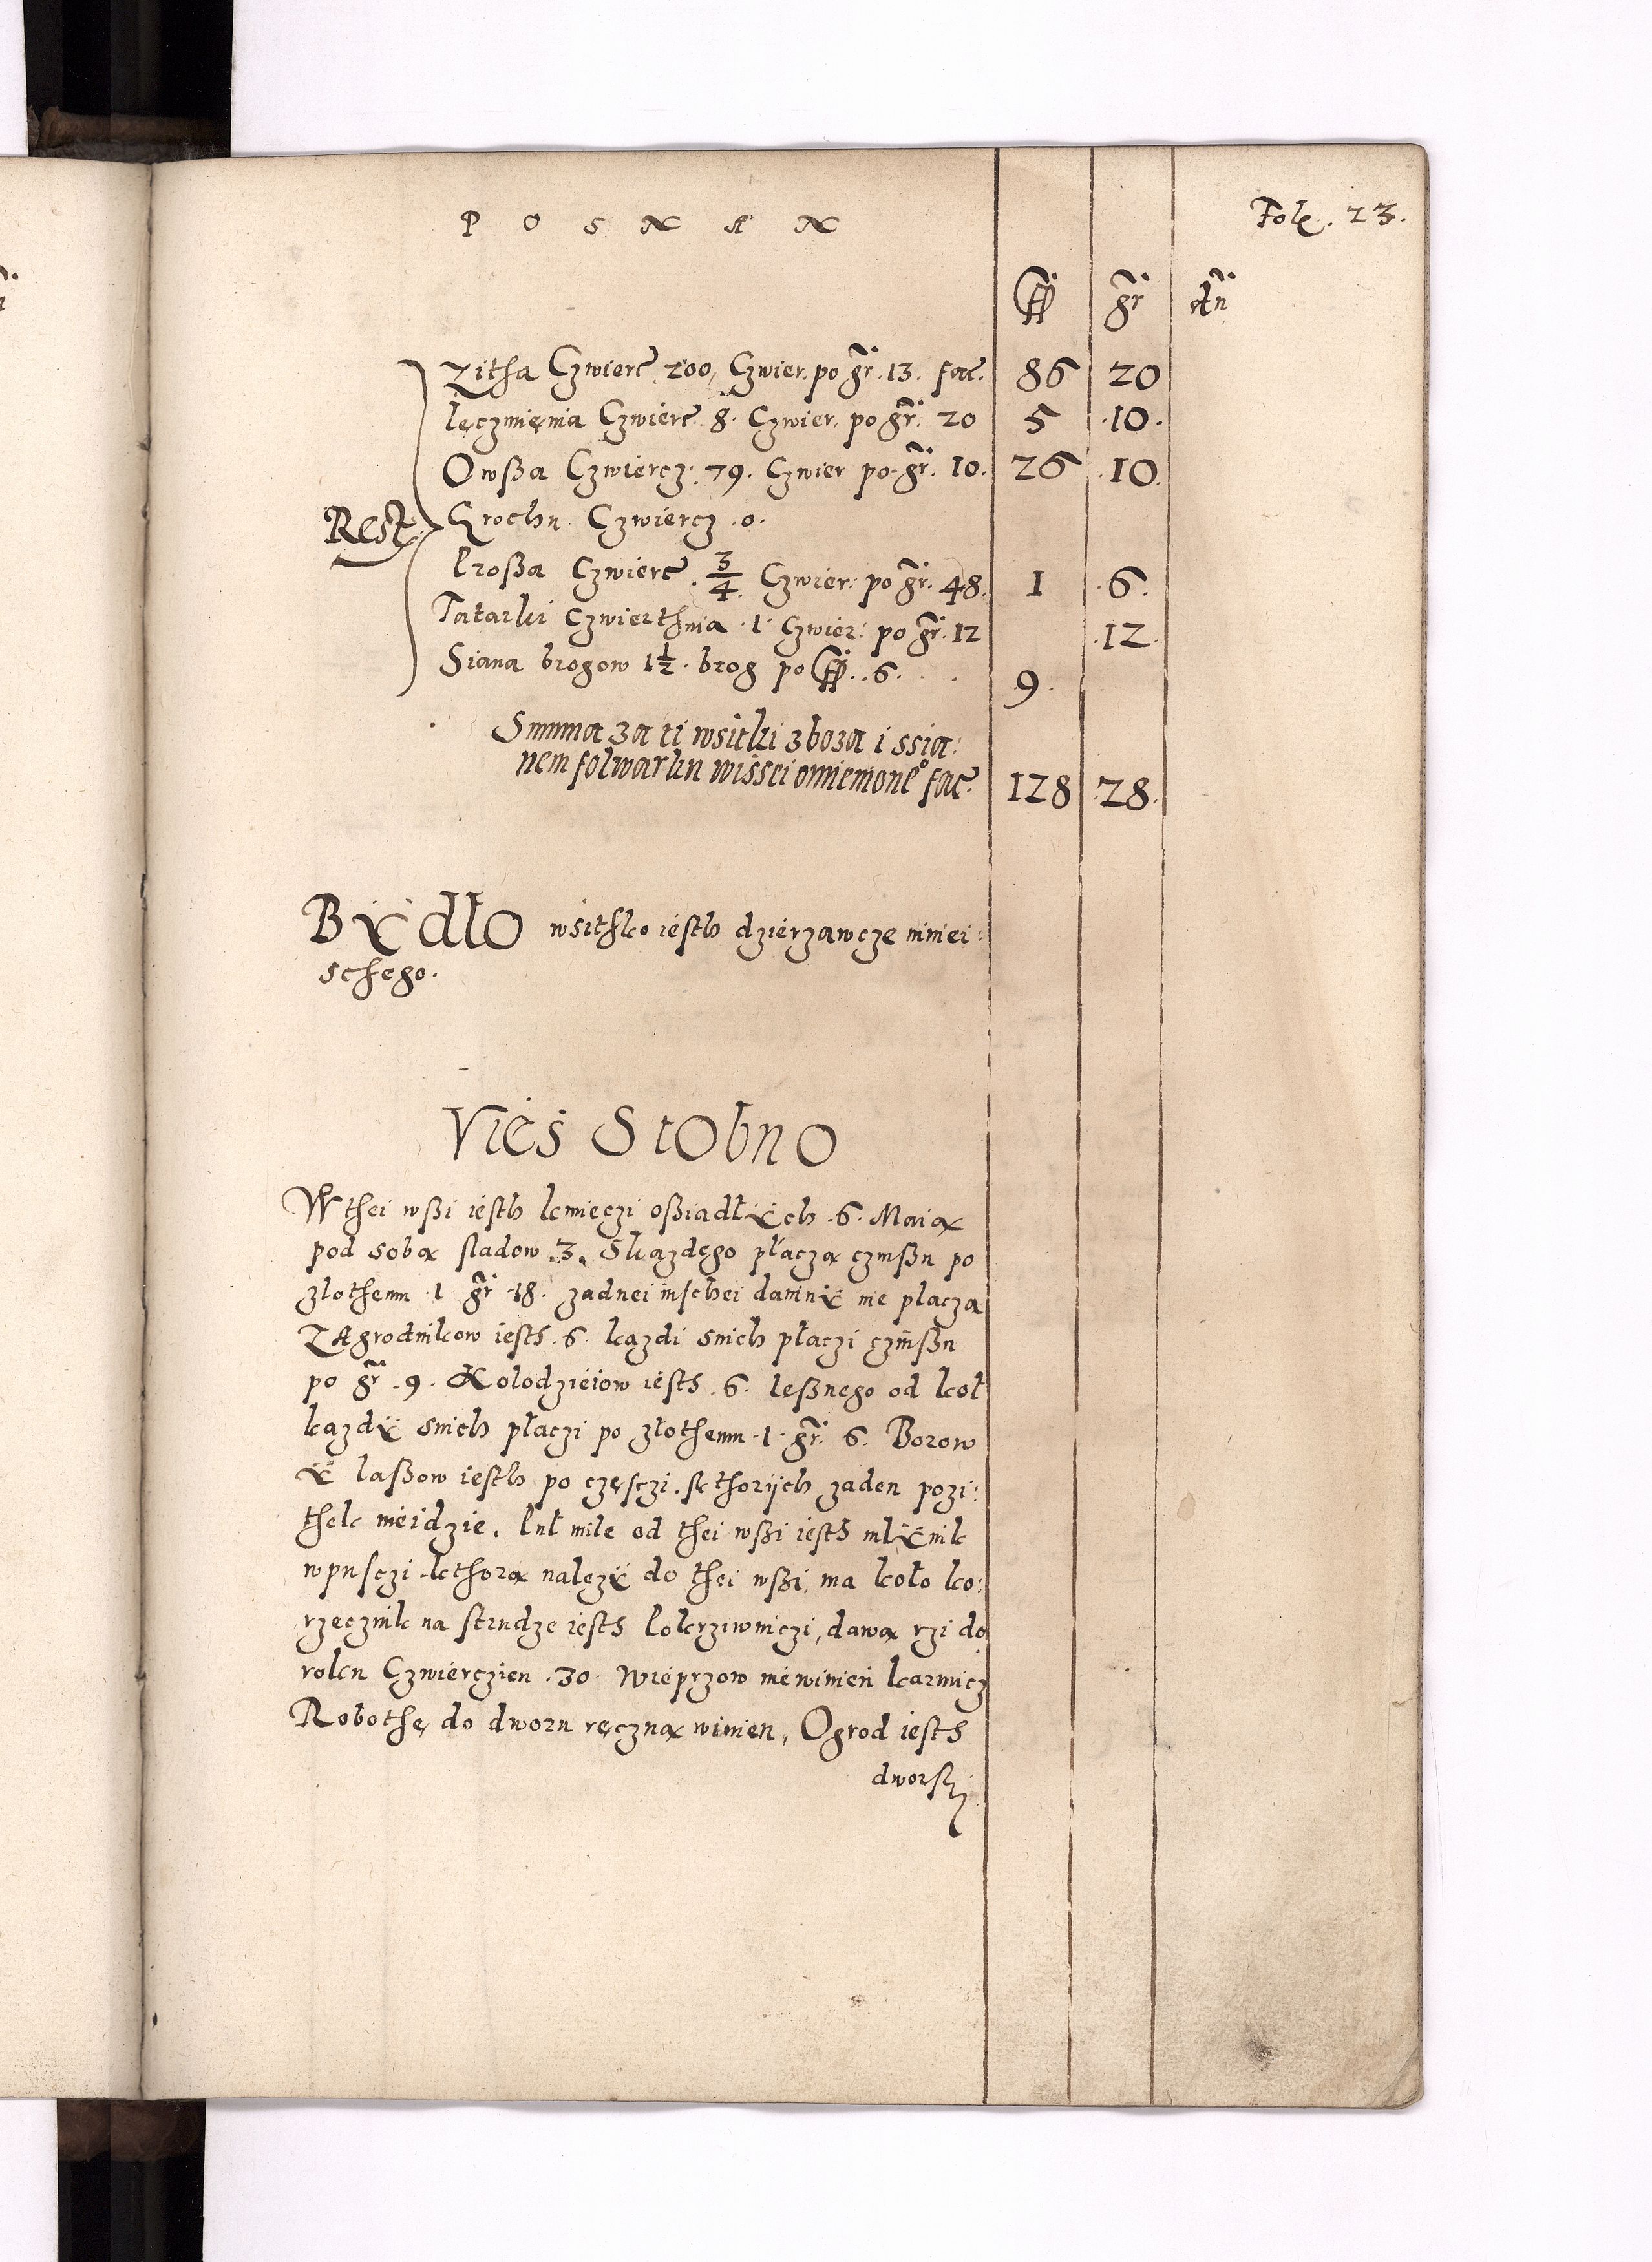 P O S N A N
Fol. 23.
fl gr dn
Zitha Czwierc 200, Czwier. po gr. 13. fac. 86 20
Ięczmięnia Czwierc. 8. Czwier. po gr. 20 5 .10.
Owßa Czwiercz. 79. Czwier po gr. 10. 26 .10.
Rest Grochu Czwiercz .0.
Proßa Czwierc 3/4. Czwier. po gr. 48. 1 .6.
Tatarki Czwierthnia .1. Czwier: po gr. 12 .12.
Siana brogow 1 1/2. brog po fl. .6. 9.
Summa za ti wsitki zboza i ssia:
nem folwarku wissei omienione° fac. 128 .28.
Bÿdło wsithko iesth dzierzawcze niniei:
schego.
Vies Stobno
W thei wßi iesth kmieczi oßiadłÿch .6. Maią
pod sobą sladow .3. Skazdego płaczą czinßu po
zlothemu .1 gr .18. zadnei inschei daninÿ nie placzą
ZAgrodnikow iesth .6. kazdi snich płaczi czinßu
po gr .9. Kolodzieiow iesth .6. leßnego od koł
kazdÿ snich płaczi po złothemu .1. gr. 6. Borow
ÿ laßow iesth po częsczi. sktorijch zaden pozi:
thek nieidzie. Puł mile od thei wßi iesth młÿnik
wpusczi kthorą należÿ do thei wßi, ma koło ko:
rzecznik na strudze iesth Pokrziwniczi, dawa rzi do
roku Czwierczien .30. Wieprzow niewinien karmicz
Robothę do dworu ręczną winien, Ogrod iesth
dworsky